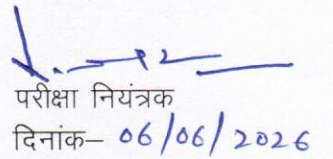 परीक्षा नियंत्रक
दिनांक– 06/06/2026